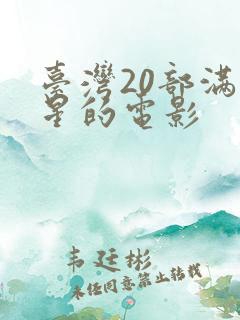 臺灣20部滿
星的電影
韦廷彬
未经同意禁止转载